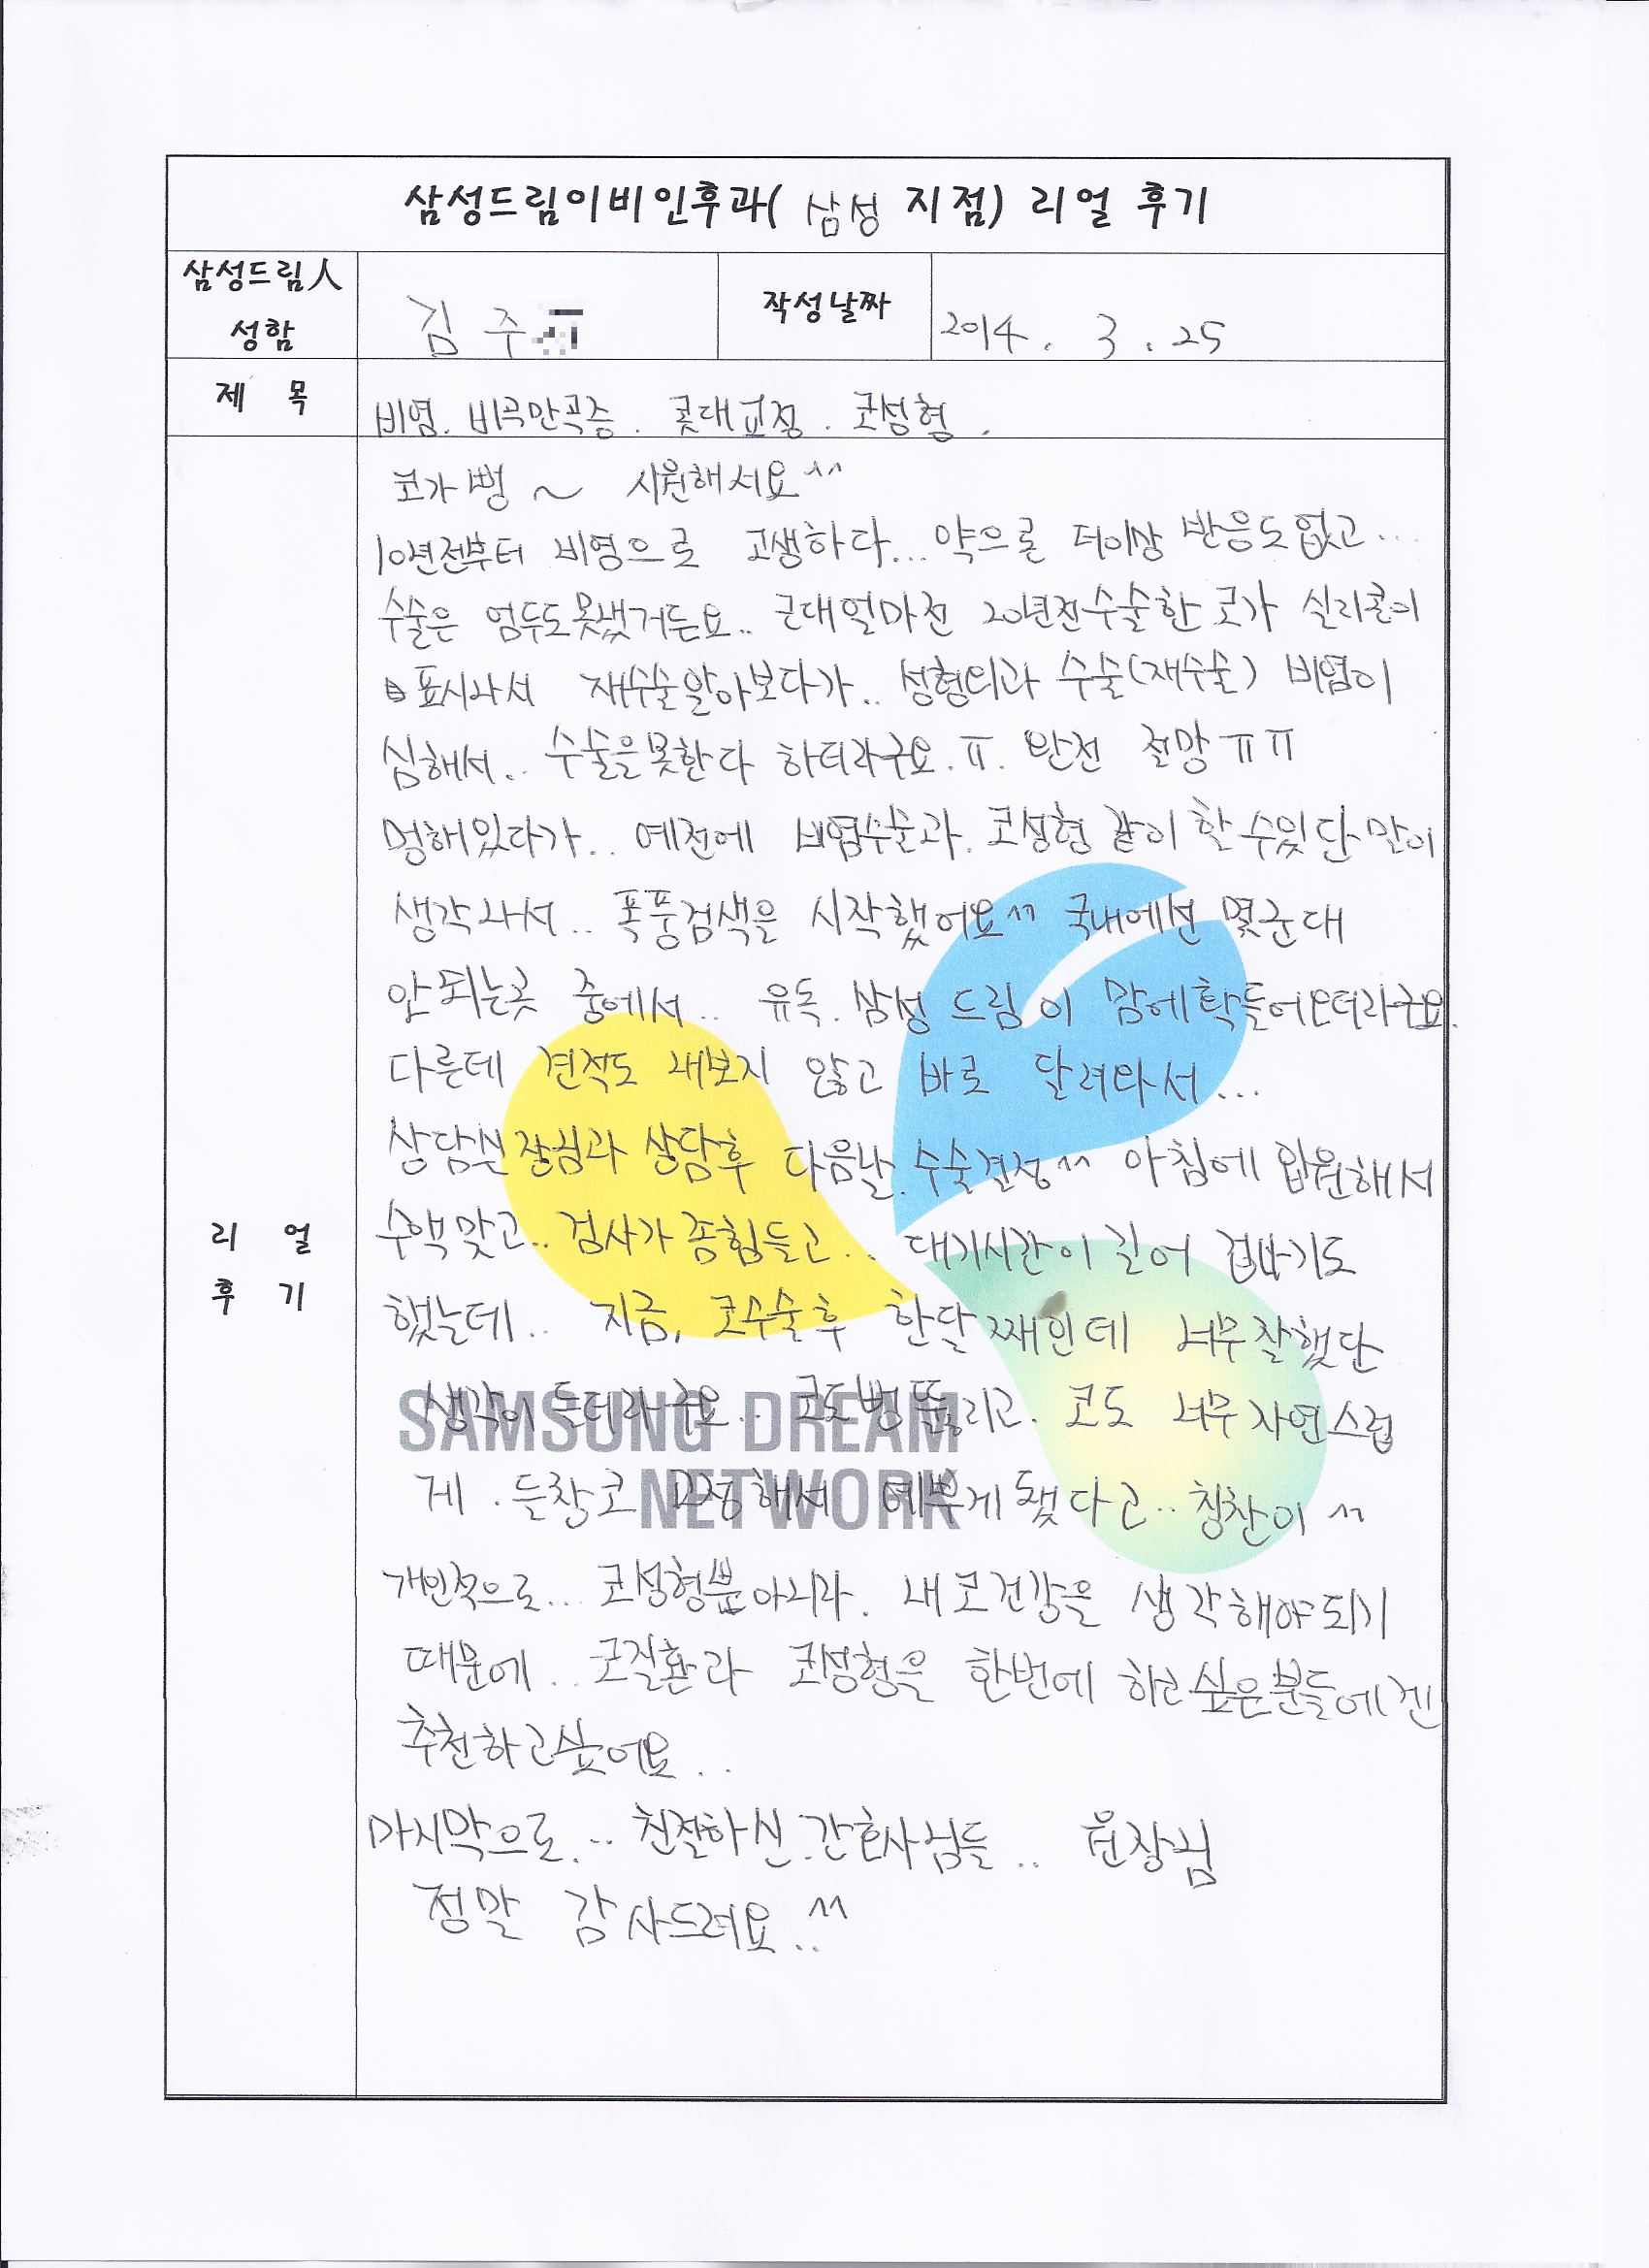 삼성드림이비인후과( 삼성 지점) 리얼 후기
삼성드림人
성함
김 주
작성날짜
2014. 3. 25
제 목
비염. 비중만곡증. 콧대교정. 코성형.
코가 뻥~ 시원해서요^^
10년전부터 비염으로 고생하다... 약으론 더이상 반응도 없고...
수술은 엄두도못냈거든요.. 근데얼마전 20년전수술한 코가 실리콘이
표시나서 재수술알아보다가.. 성형외과 수술(재수술) 비염이
심해서.. 수술을못한다 하더라구요.ㅠ. 완전 절망ㅠㅠ
멍해있다가.. 예전에 비염수술과. 코성형 같이 할수있단 말이
생각나서.. 폭풍검색을 시작했어요^^ 국내에선 몇군대
안되는곳 중에서.. 유독. 삼성 드림이 맘에확들어오더라구요.
다른데 견적도 내보지 않고 바로 달려와서...
상담실장님과 상담후 다음날.수술결정^^ 아침에 입원해서
수액맞고.. 검사가 좀힘들고.. 대기시간이 길어 겁나기도
했는데.. 지금, 코수술후 한달째인데 너무잘했단
생각이 드더라구요.. 코도뻥뚫리고. 코도 너무자연스럽
게. 들창코 교정해서 예쁘게됐다고.. 칭찬이^^
개인적으로... 코성형뿐아니라. 내코건강을 생각해야되기
때문에.. 코질환과 코성형을 한번에 하고싶은분들에겐
추천하고싶어요..
마지막으로... 친절하신.간호사님들.. 원장님
정말 감사드려요..^^
리 얼
후 기
SAMSUNG DREAM
NETWORK